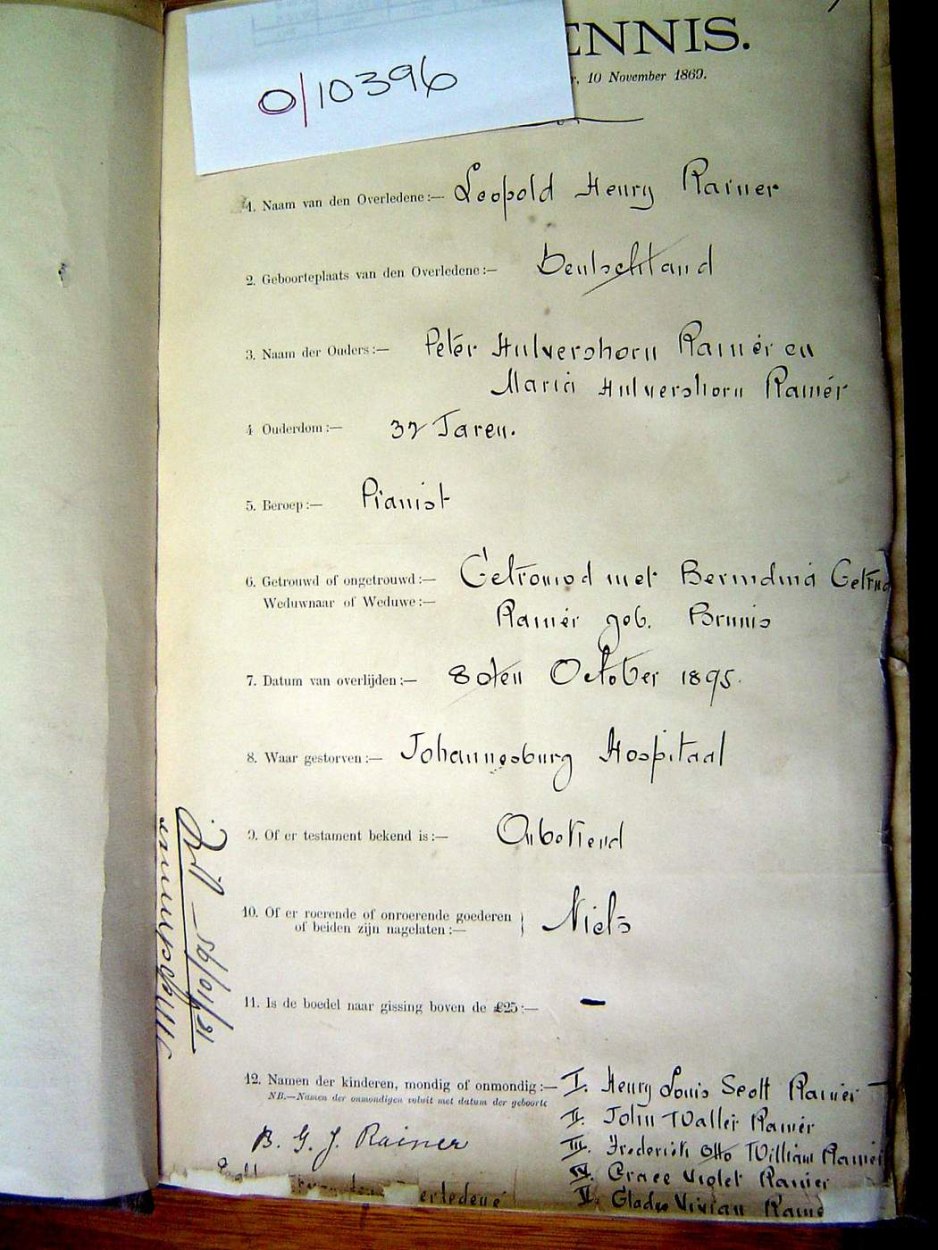 O/10396
ENNIS.
10 November 1869.
1. Naam van den Overledene:— Leopold Henry Rainer
2. Geboorteplaats van den Overledene:— Deutschland
3. Naam der Ouders:— Peter Hulvershorn Rainér en
Maria Hulvershorn Rainér
4 Ouderdom:— 37 Jaren.
5. Beroep:— Pianist
6. Getrouwd of ongetrouwd:— Getrouwd met Berindina
Weduwnaar of Weduwe:— Rainér geb. Brunis
7. Datum van overlijden:— 8sten October 1895.
8. Waar gestorven:— Johannesburg Hospitaal
9. Of er testament bekend is:— Onbekend
10. Of er roerende of onroerende goederen
of beiden zijn nagelaten:— Niets
11. Is de boedel naar gissing boven de £25:— —
12. Namen der kinderen, mondig of onmondig:— I. Henry Louis Scott Rainer
NB.—Namen der onmondigen voluit met datum der geboorte
II. John Walter Rainér
B. G. J. Rainer
III. Frederick Otto William Rainér
IV. Grace Violet Rainer
erledene V. Gladys Vivian